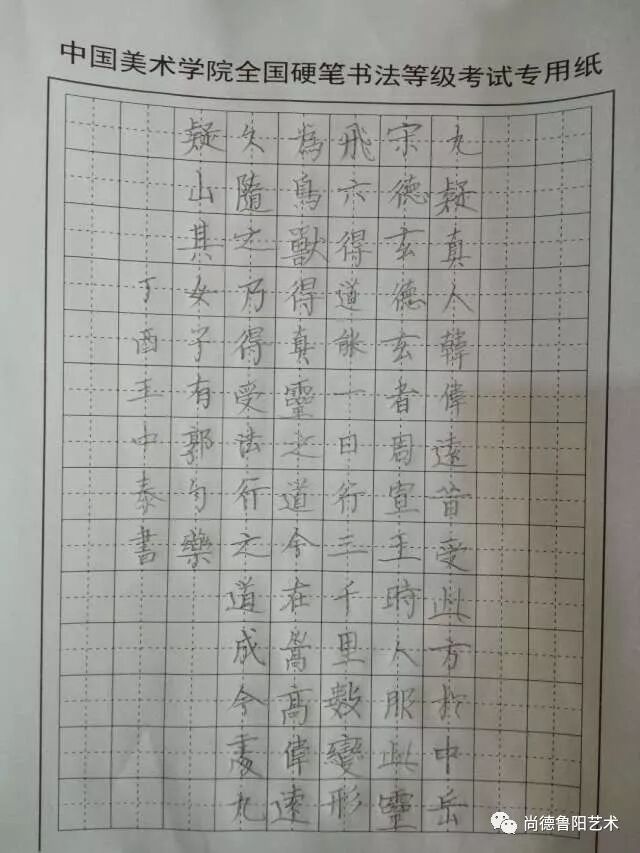 中国美术学院全国硬笔书法等级考试专用纸
九疑真人韓偉遠昔受此方於中岳
宋德玄德玄者周宣王時人服此靈
飛六得道能一日行三千里數變形
為鳥獸得真靈之道今在嵩高偉遠
久隨之乃得受法行之道成今處九
疑山其女子有郭勺藥
丁酉王中泰書
尚德鲁阳艺术